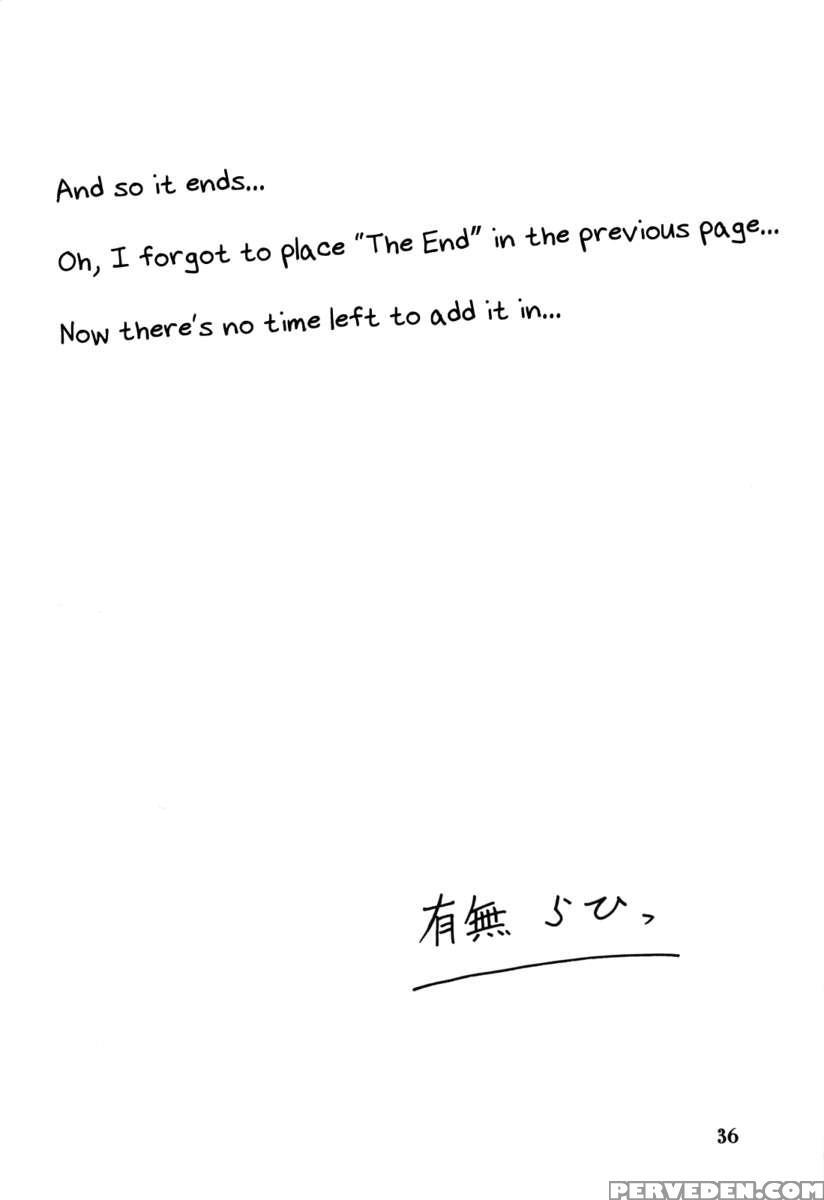 And so it ends...
Oh, I forgot to place "The End" in the previous page...
Now there's no time left to add it in...
有無 らひっ
36
PERVEDEN.COM